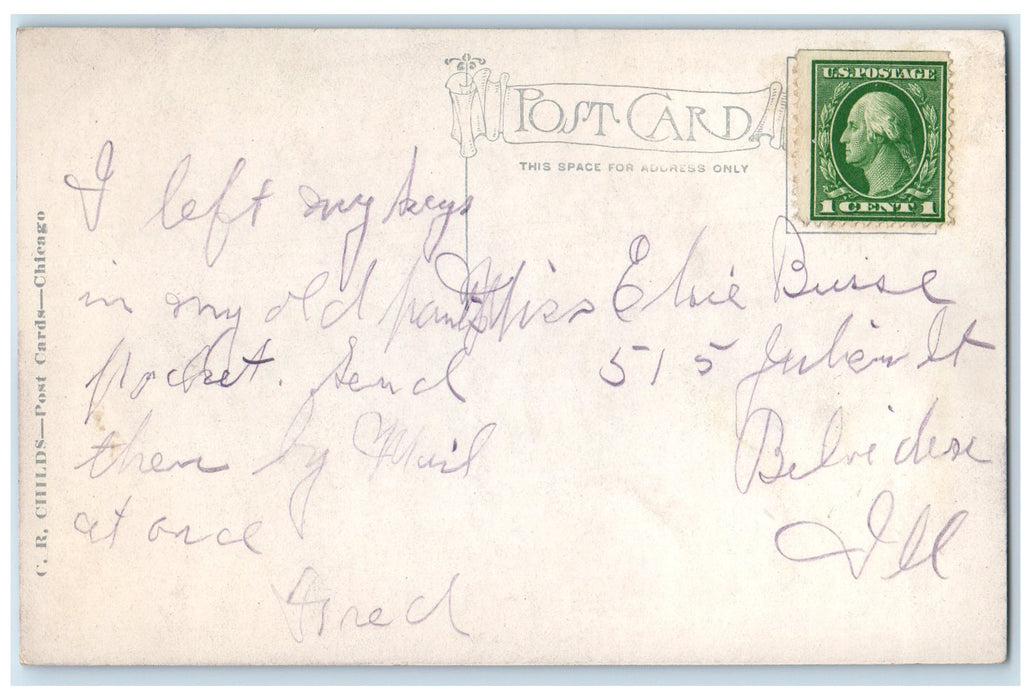 POST CARD
THIS SPACE FOR ADDRESS ONLY
U.S. POSTAGE
1 CENT 1
C. R. CHILDS—Post Cards—Chicago
I left my keys
in my old pants
pocket. Send
them by Mail
at once
Fred
Miss Elsie Busse
515 Julien St
Belvidere
Ill